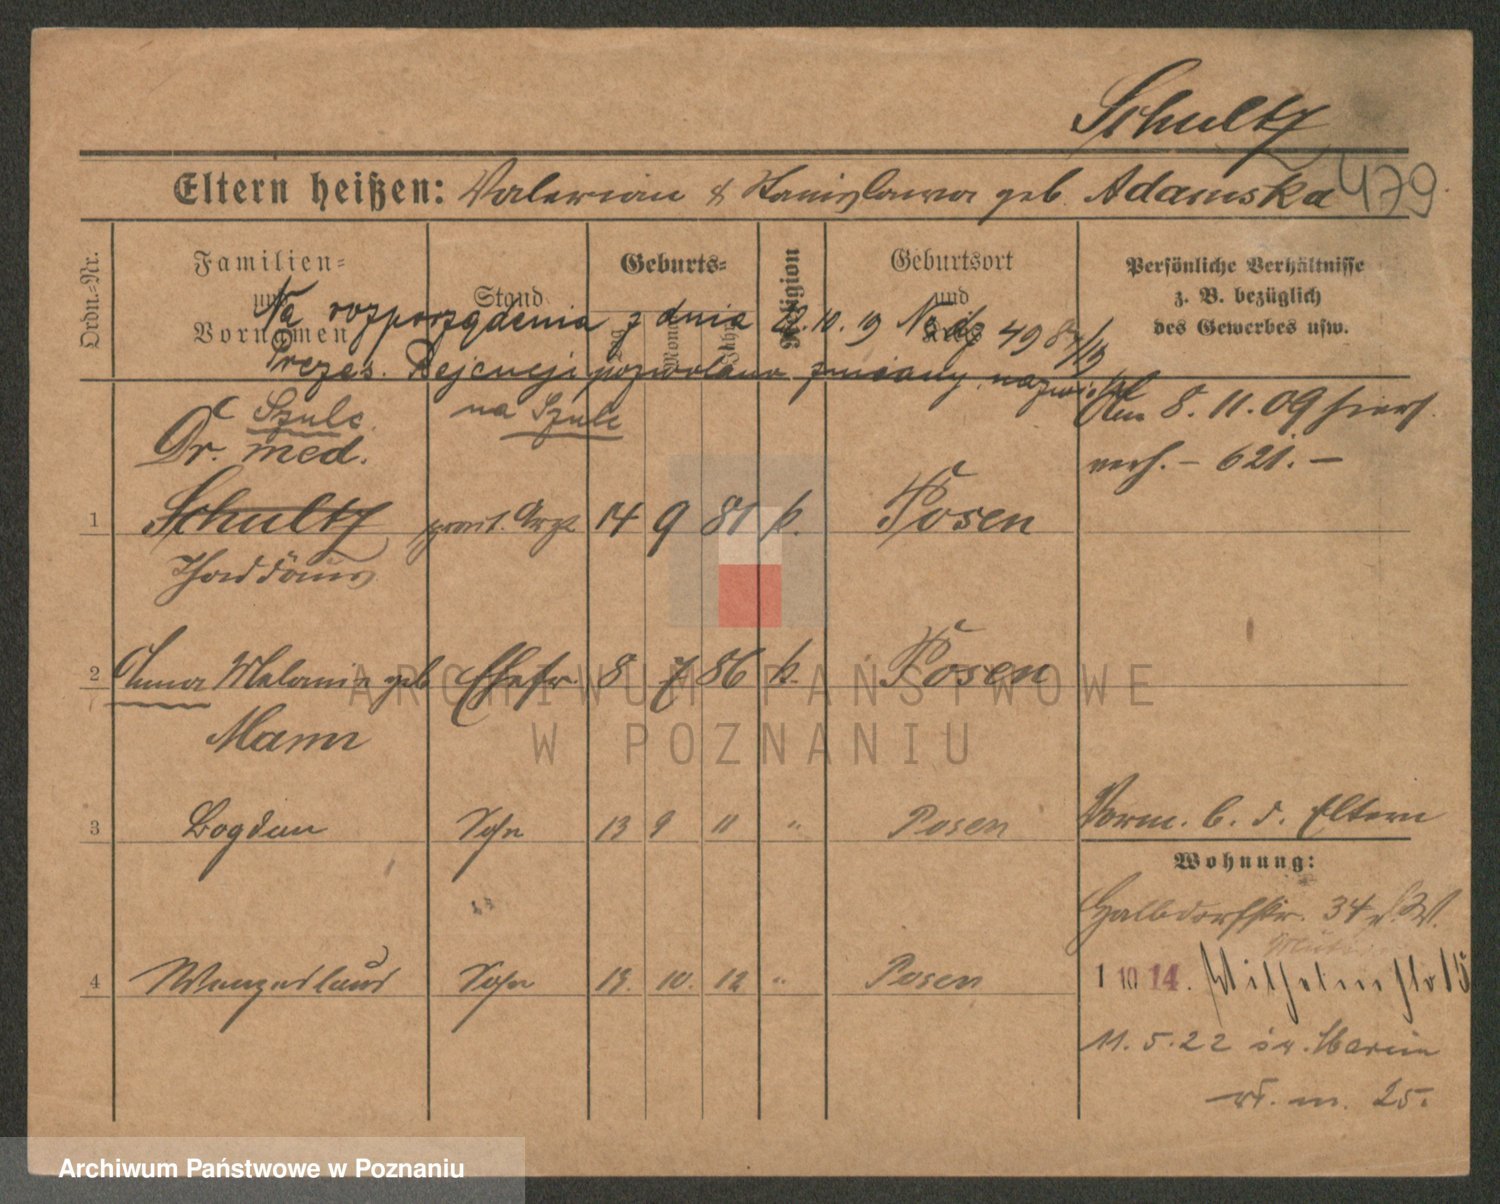 Schultz
Eltern heißen: Valerian & Stanislawa geb. Adamska
479
Ordn.-Nr.
Familien-
und
Vornamen
Stand
Geburts-
Tag
Monat
Jahr
Religion
Geburtsort
und
Kreis
Persönliche Verhältnisse
z. B. bezüglich
des Gewerbes usw.
Na rozporządzenia z dnia 22.10.19 No 4987/19
Prezes. Rejencji pozwolono zmiany nazwiska
na Szulc
Szulc
Dr. med.
1 Schultz prakt. Arzt 14 9 81 k. Posen
Thaddäus
Am 8.11.09 hier
verh. – 621. –
2 Anna Melanie geb Ehefr. 8 7 86 k. Posen
Mann
3 Bogdan Sohn 13 9 11 " Posen
Vorm. b. d. Eltern
Wohnung:
Halbdorfstr. 34
4 Sohn 13. 10. 12 " Posen
1 10 14. Wilhelmstr 15
11.5.22 św. Marcin
25.
ARCHIWUM PAŃSTWOWE
W POZNANIU
Archiwum Państwowe w Poznaniu